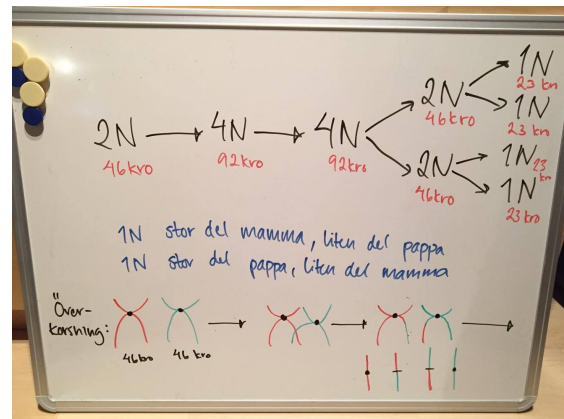 2N → 4N → 4N
46kro 92kro 92kro
2N
46kro
1N
23 kn
1N
23 kro
2N
46kro
1N 23
kro
1N
23kro
1N stor del mamma, liten del pappa
1N stor del pappa, liten del mamma
Över-
korsning:
46kro 46 kro